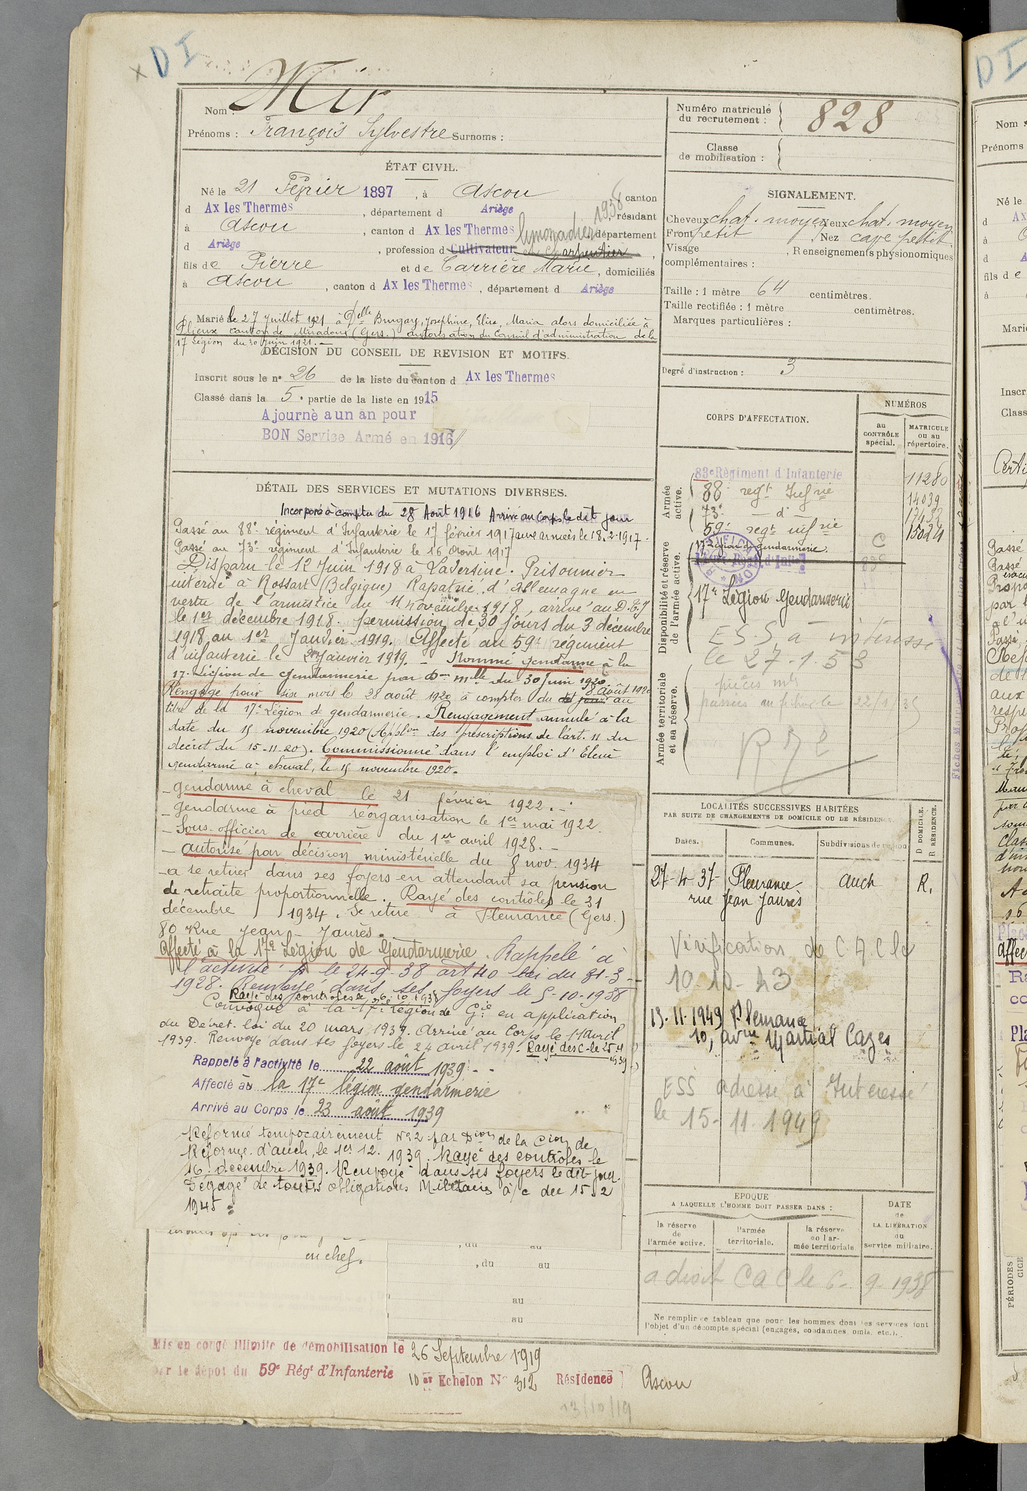 x DI
Nom : Mir
Prénoms : François Sylvestre Surnoms :
ÉTAT CIVIL.
Né le 21 Février 1897, à Ascou canton
d Ax les Thermes, département d Ariège résidant
à Ascou, canton d Ax les Thermes département
d Ariège, profession d Cultivateur limonadier 1938 Charpentier,
fils de Pierre et de Carrière Marie, domiciliés
à Ascou, canton d Ax les Thermes, département d Ariège
Marié le 27 Juillet 1921 à Delle Joséphine, Elise, Maria alors domiciliée à
canton de Miradoux (Gers.) autorisation du Conseil d'administration de la
17 Légion du 30 Juin 1921.
DÉCISION DU CONSEIL DE REVISION ET MOTIFS.
Inscrit sous le n° 26 de la liste du canton d Ax les Thermes
Classé dans la 5e partie de la liste en 1915
Ajourné a un an pour
BON Service Armé en 1916
DÉTAIL DES SERVICES ET MUTATIONS DIVERSES.
Incorporé à compter du 28 Août 1916 Arrivé au Corps le dit jour
Passé au 88e régiment d'Infanterie le 17 février 1917 aux armées le 18.2.1917.
Passé au 73e régiment d'Infanterie le 16 Août 1917
Disparu le 12 Juin 1918 à Laversine. Prisonnier
interné à Rossart (Belgique) Rapatrié d'Allemagne en
vertu de l'armistice du 11 novembre 1918, arrivé au D.C.J
le 1er décembre 1918. permission de 30 jours du 3 décembre
1918 au 1er Janvier 1919. Affecté au 59e régiment
d'infanterie le 2 Janvier 1919. Nommé gendarme à la
17e Légion de gendarmerie par Don mlle du 30 Juin 1920.
Rengagé pour six mois le 28 août 1920 à compter du dit jour 8 Août 1920 au
titre de la 17e Légion de gendarmerie. Rengagement annulé à la
date du 15 novembre 1920 (Applon des prescriptions de l'art. 11 du
décret du 15-11-20). Commissionné dans l'emploi d'Elève
gendarme à cheval, le 15 novembre 1920.
- gendarme à cheval le 21 février 1922. -
- gendarme à pied réorganisation le 1er mai 1922.
- Sous-officier de carrière du 1er avril 1928. -
- autorisé par décision ministérielle du 8 nov. 1934
- a se retirer dans ses foyers en attendant sa pension
de retraite proportionnelle. Rayé des contrôles le 31
décembre 1934. Se retire à Fleurance (Gers)
80 Rue Jean-Jaurès.
Affecté à la 17e Légion de Gendarmerie. Rappelé à
l'activité le 24-9-38 art 40 loi du 31-3-
1928. Renvoyé dans ses foyers le 5-10-1938
Rayé des controles le 6.10.1938
Convoqué à la 17e région de Gie en application
du Décret-loi du 20 mars 1939. Arrivé au Corps le 11 avril
1939. Renvoyé dans ses foyers le 24 avril 1939. Rayé des C. le 25.4
1939
Rappelé à l'activité le 22 août 1939
Affecté à la 17e légion gendarmerie
Arrivé au Corps le 23 août 1939
Réformé temporairement N° 2 par Dion de la Cion de
Réforme d'Auch, le 1er 12. 1939. Rayé des controles le
16 décembre 1939. Renvoyé dans ses foyers le dit jour.
Dégagé de toutes obligations Militaires à/c du 15 2
1945
en chef.
, du au
au
au
Mis en congé illimité de démobilisation le 26 Septembre 1919
par le dépot du 59e Régt d'Infanterie 10e Echelon N° 312 Résidence Ascou
13/10/19
Numéro matricule du recrutement : 828
Classe de mobilisation :
SIGNALEMENT.
Cheveux chat. moyen Yeux chat. moyen
Front petit, Nez cave petit
Visage , Renseignements physionomiques
complémentaires :
Taille : 1 mètre 64 centimètres.
Taille rectifiée : 1 mètre centimètres.
Marques particulières :
Degré d'instruction : 3
CORPS D'AFFECTATION.
NUMÉROS
au CONTRÔLE spécial.
MATRICULE ou au répertoire.
Armée active.
88e Régiment d'Infanterie 11280
88e regt Infrie 14039
73e - d°
59e regt infrie
Disponibilité et réserve de l'armée active.
17e Légion de gendarmerie. C
17e Légion Gendarmerie
E.S.S. à intéressé
le 27.1.53
Armée territoriale et sa réserve.
LOCALITÉS SUCCESSIVES HABITÉES
PAR SUITE DE CHANGEMENTS DE DOMICILE OU DE RÉSIDENCE.
D DOMICILE. R RÉSIDENCE.
Dates. Communes. Subdivisions de région
27-4-37 Fleurance Auch R.
rue Jean Jaurès
Vérification de C.A.C le
10-10-43
13.11.1949 Fleurance
10, avue Martial Cazes
ESS adressé à Intéressé
le 15-11-1949
EPOQUE
A LAQUELLE L'HOMME DOIT PASSER DANS :
DATE de LA LIBÉRATION du service militaire.
la réserve de l'armée active.
l'armée territoriale.
la réserve de l'armée territoriale
a droit C a C le 6-9-1938
Ne remplir ce tableau que pour les hommes dont les services font
l'objet d'un décompte spécial (engagés, condamnés, omis, etc.).
DI
Nom
Prénoms
Né le
fils de